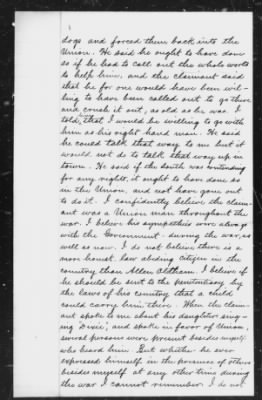 dogs and forced them back into the
Union. He said he ought to have done
so if he had to call out the whole world
to help him, and the claimant said
that he for one would have been wil-
ling to have been called out to go there
and crush it out, as old as he was. I
told him that I would be willing to go with
him as his right hand man. He said
he could talk that way to me but it
would not do to talk that way up in
town. He said if the South was contending
for any right, it ought to have done so
in the Union, and not have gone out
to do it. I confidently believe the claim-
ant was a Union man throughout the
war. I believe his sympathies were along
with the Government - during the war, as
well as now. I do not believe there is a
more honest law abiding citizen in the
country than Allen Altham. I believe if
he should be sent to the penitentiary by
the laws of his country that a child
could carry him there. When the claim-
ant spoke to me about his daughter sing-
ing Dixie, and spoke in favor of Union,
several persons were present besides myself
who heard him. But whether he ever
expressed himself in the presence of others
besides myself at any other time during
the war I cannot remember. I do not